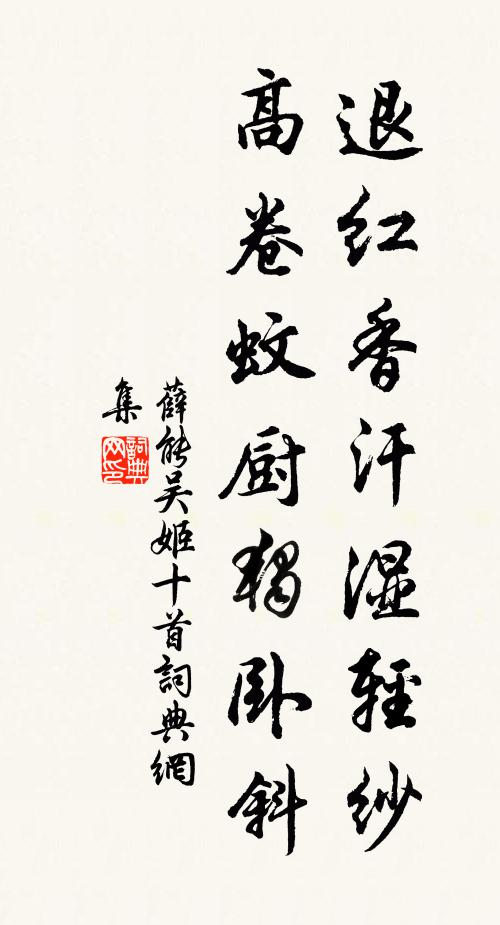 退红香汗湿輕紗
高卷蚊厨獨卧斜
薛能吴姬十首詞典網
集
詞典
网印